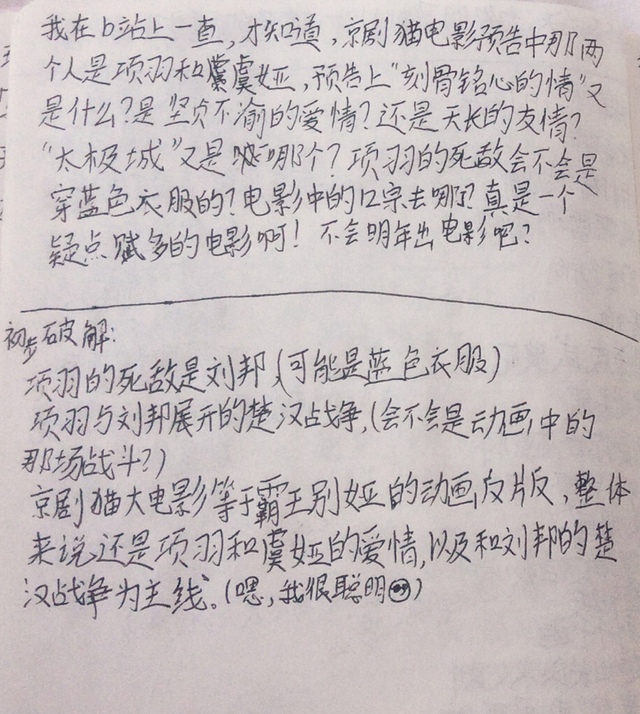 我在b站上一直，才知道，京剧猫电影预告中那两
个人是项羽和虞娅，预告上“刻骨铭心的情”又
是什么？是坚贞不渝的爱情？还是天长的友情？
“太极城”又是哪个？项羽的死敌会不会是
穿蓝色衣服的？电影中的口宗去哪了？真是一个
疑点赋多的电影啊！不会明年出电影吧？
初步破解：
项羽的死敌是刘邦，（可能是蓝色衣服）
项羽与刘邦展开的楚汉战争，（会不会是动画中的
那场战斗？）
京剧猫大电影等于霸王别娅的动画反版，整体
来说还是项羽和虞娅的爱情，以及和刘邦的楚
汉战争为主线。（嗯，我很聪明）